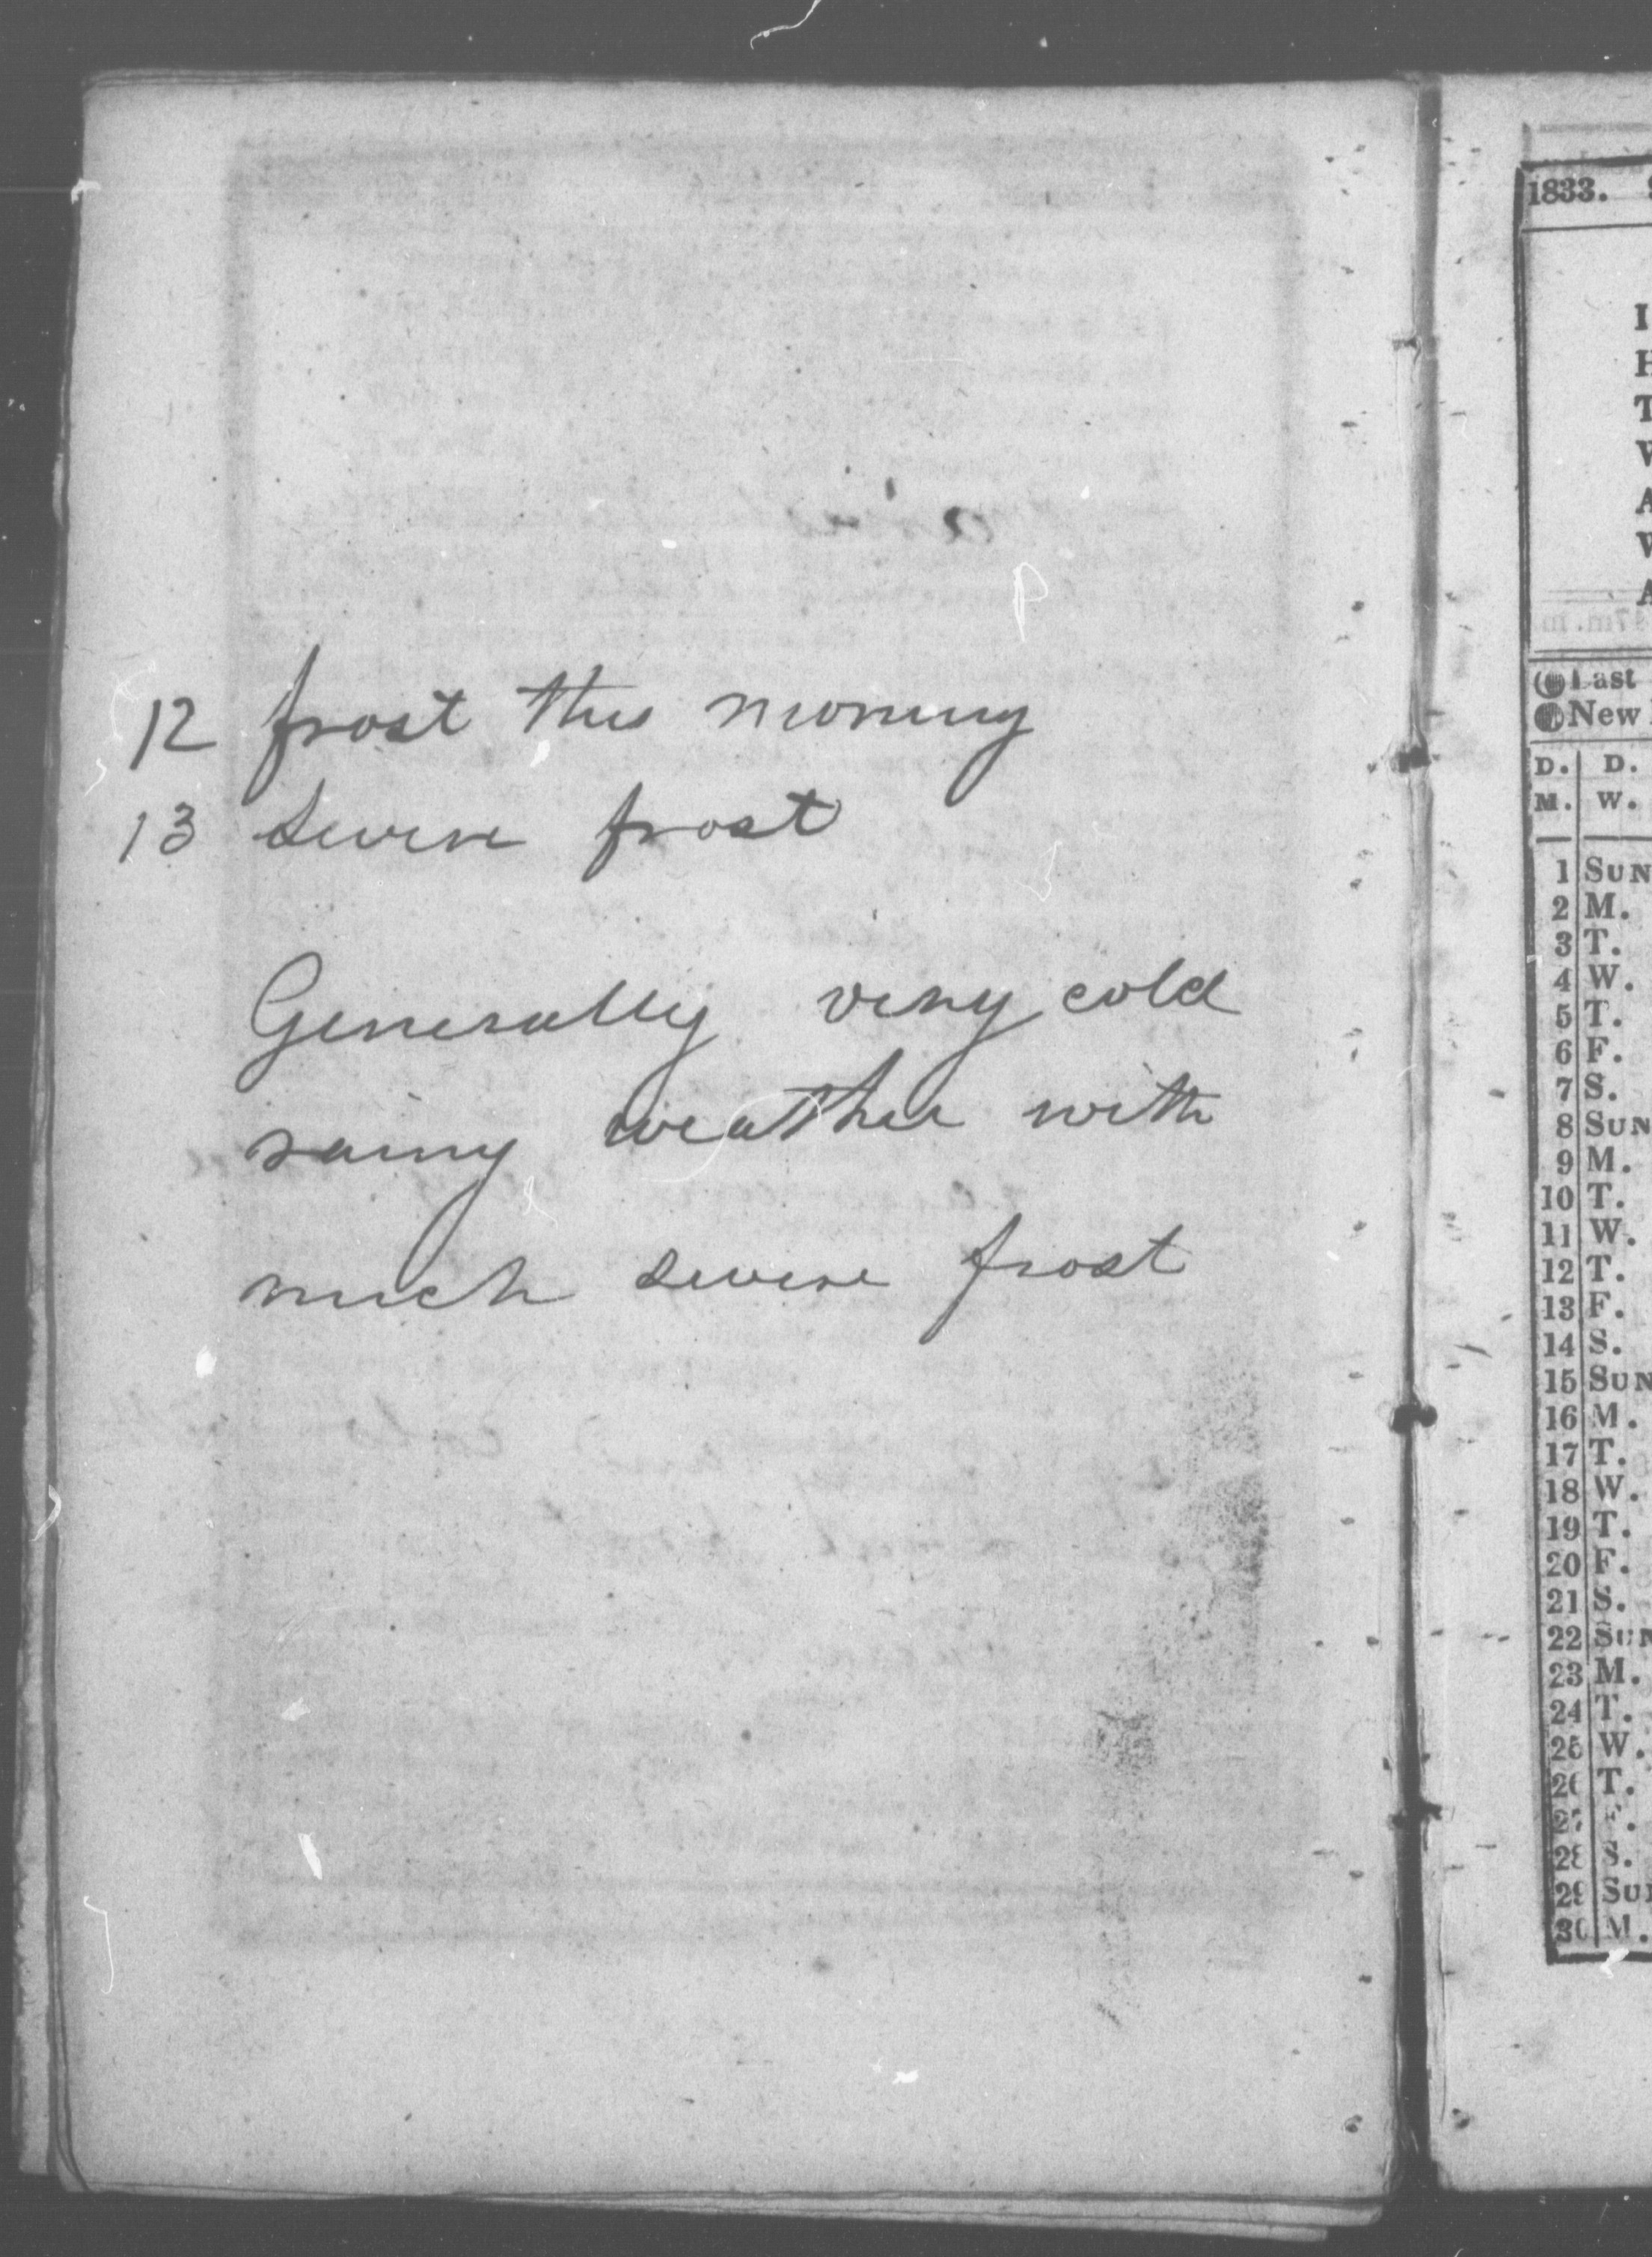 12 frost this morning
13 severe frost
Generally very cold
rainy weather with
much severe frost
1833.
I
H
T
W
A
W
A
Last
New
D. D.
M. W.
1 SUN
2 M.
3 T.
4 W.
5 T.
6 F.
7 S.
8 SUN
9 M.
10 T.
11 W.
12 T.
13 F.
14 S.
15 SUN
16 M.
17 T.
18 W.
19 T.
20 F.
21 S.
22 SUN
23 M.
24 T.
25 W.
26 T.
27 F.
28 S.
29 SUN
30 M.